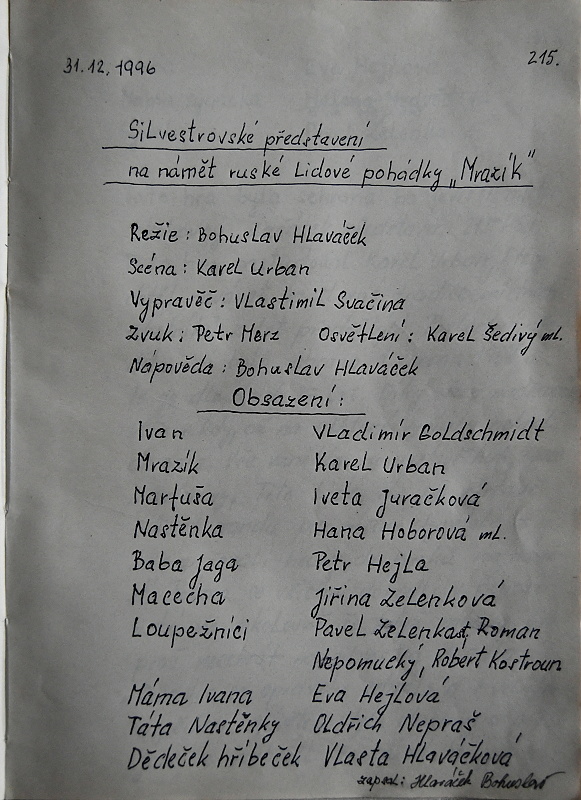 31.12.1996
215.
Silvestrovské představení
na námět ruské Lidové pohádky „Mrazík"
Režie: Bohuslav Hlaváček
Scéna: Karel Urban
Vypravěč: Vlastimil Svačina
Zvuk: Petr Merz Osvětlení: Karel Šedivý ml.
Nápověda: Bohuslav Hlaváček
Obsazení:
Ivan Vladimír Goldschmidt
Mrazík Karel Urban
Marfuša Iveta Juračková
Nastěnka Hana Hoborová ml.
Baba Jaga Petr Hejla
Macecha Jiřina Zelenková
Loupežníci Pavel Zelenka st, Roman
Nepomucký, Robert Kostroun
Máma Ivana Eva Hejlová
Táta Nastěnky Oldřich Nepraš
Dědeček hříbeček Vlasta Hlaváčková
zapsal: Hlaváček Bohuslav